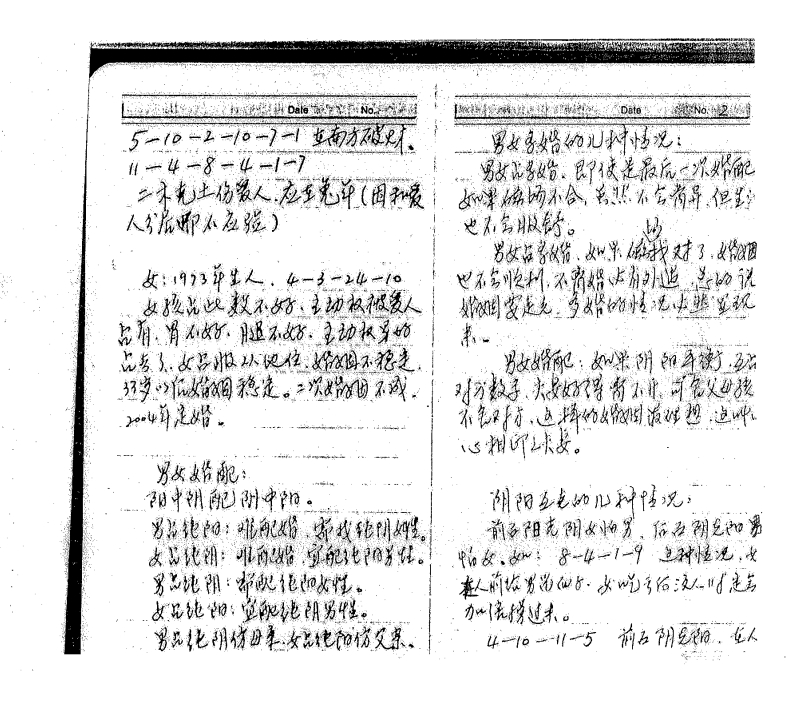 Date No.
5-10-2-10-7-1 在南方破财。
11-4-8-4-1-7
二木克土伤爱人,应在兔年(因和爱
人分居哪不应验)
女:1973年生人。4-3-24-10
女孩占此数不好,主动权被爱人
占有,胃不好,腿不好,主动权男的
占去了,女占服从地位,婚姻不稳定,
33岁以后婚姻稳定。二次婚姻不成。
2004年定婚。
男女婚配:
阳中阴配阴中阳。
男占纯阳:难配婚,需找纯阴女性。
女占纯阴:难配婚,宜配纯阳男性。
男占纯阴:需配纯阳女性。
女占纯阳:宜配纯阴男性。
男占纯阴伤母亲,女占纯阳伤父亲。
Date No. 2
男女多婚的几种情况:
男女占多婚,即使是最后一次婚配
如果磁场不合,虽然不会离异,但生
也不会服舒。
男女占多婚,如果磁场找对了,婚姻
也不会顺利,不离婚必有外遇,总的说
婚姻要走先,多婚的情况必然呈现
来。
男女婚配:如果阴阳平衡,互占
对方数字,夫妻好得离不开,可克父母孩
不克对方,这样的婚姻很理想,这叫
心相印之夫妻。
阴阳互克的几种情况:
前占阳克阴女怕男,后占阴克阳男
怕女。如:8-4-1-9 这种情况,女
人前给男面子,女吃亏后没人时定会
加倍撈过来。
4-10-11-5 前占阴克阳,在人